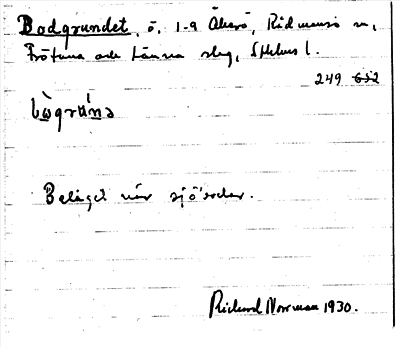 Bodgrundet, ö. 1-9 Åkerö, Rädmansö sn,
Frötuna och Länna slag, Sthlms l.
249 632
Belägen när sjöbodar.
Rickard Norrman 1930.